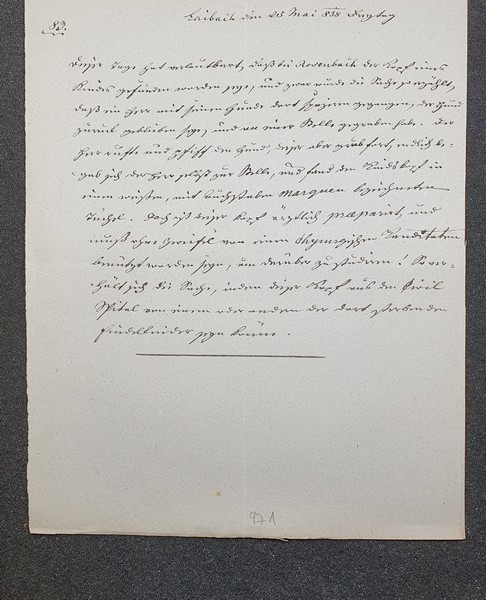 83.
Laibach den 25 Mai 838 Freytag
Dieser Tage hat verlautbart, daß bei Rosenbach der Kopf eines
Kindes gefunden worden seye, und zwar wurde die Sache so erzählt,
daß ein Herr mit seinem Hunde dort spazieren gegangen, der Hund
zurück geblieben seye, und an einer Stelle gegraben habe. Der
Herr rufte und pfiff dem Hund, dieser aber grub fort, endlich be-
gab sich der Herr selbst zur Stelle, und fand den Kindskopf in
einem weißen, mit buchstaben marquen bezeichneten
Tüchel. Doch ist dieser Kopf ärztlich præparirt, und
muß ohne Zweifel von einem chyrurgischen Canditaten
benützt worden seyn, um darüber zu studieren! So ver-
hält sich die Sache, indem dieser Kopf aus dem Civil
Spital von einem oder andern der dort sterbenden
Findelkinder seyn könne.
971